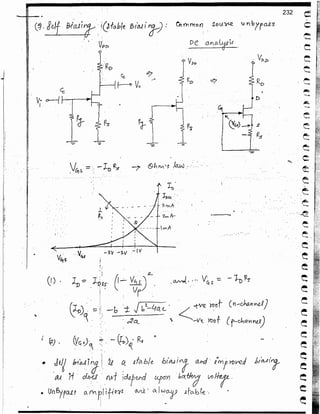 232
(3). Self Biasing (Stable Biasing): Common source unbypass
DC analysis
VDD
VDD
VDD
RD
RD
RD
C2
V0
C1
Vi
D
G
Rg
RS
Rg
RS
VGS
S
RS
VGS = - ID RS → Ohm's law
ID
IDSS
3mA
2mA
1mA
Q
-3V -2V -1V
VGS
(1). ID = IDSS (1 - VGS/VP)² and VGS = - ID RS
(ID)Q = -b ± √b²-4ac / 2a
+ve root (n-channel)
-ve root (p-channel)
(2). (VGS)Q = - (ID)Q RS
• Self biasing is a stable biasing and improved biasing
as it does not depend upon battery voltage.
• Unbypass amplifiers are always stable.